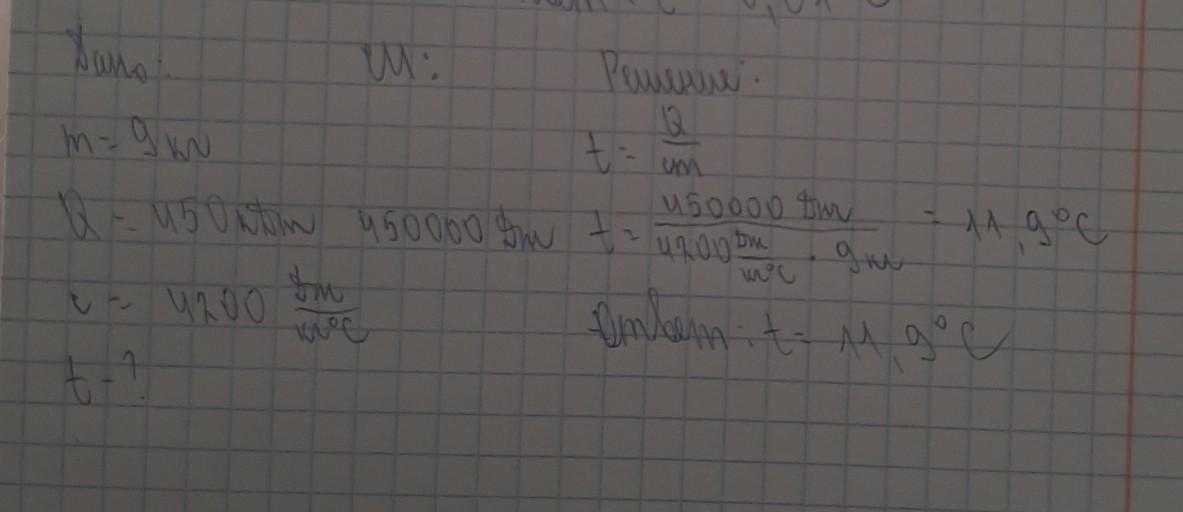 Дано: СИ: Решение:
m = 9 кг t = Q/cm
Q = 450 кДж 450000 Дж t = 450000 Дж / 4200 Дж/кг°C · 9 кг = 11,9°C
c = 4200 Дж/кг°C Ответ: t = 11,9°C
t - ?